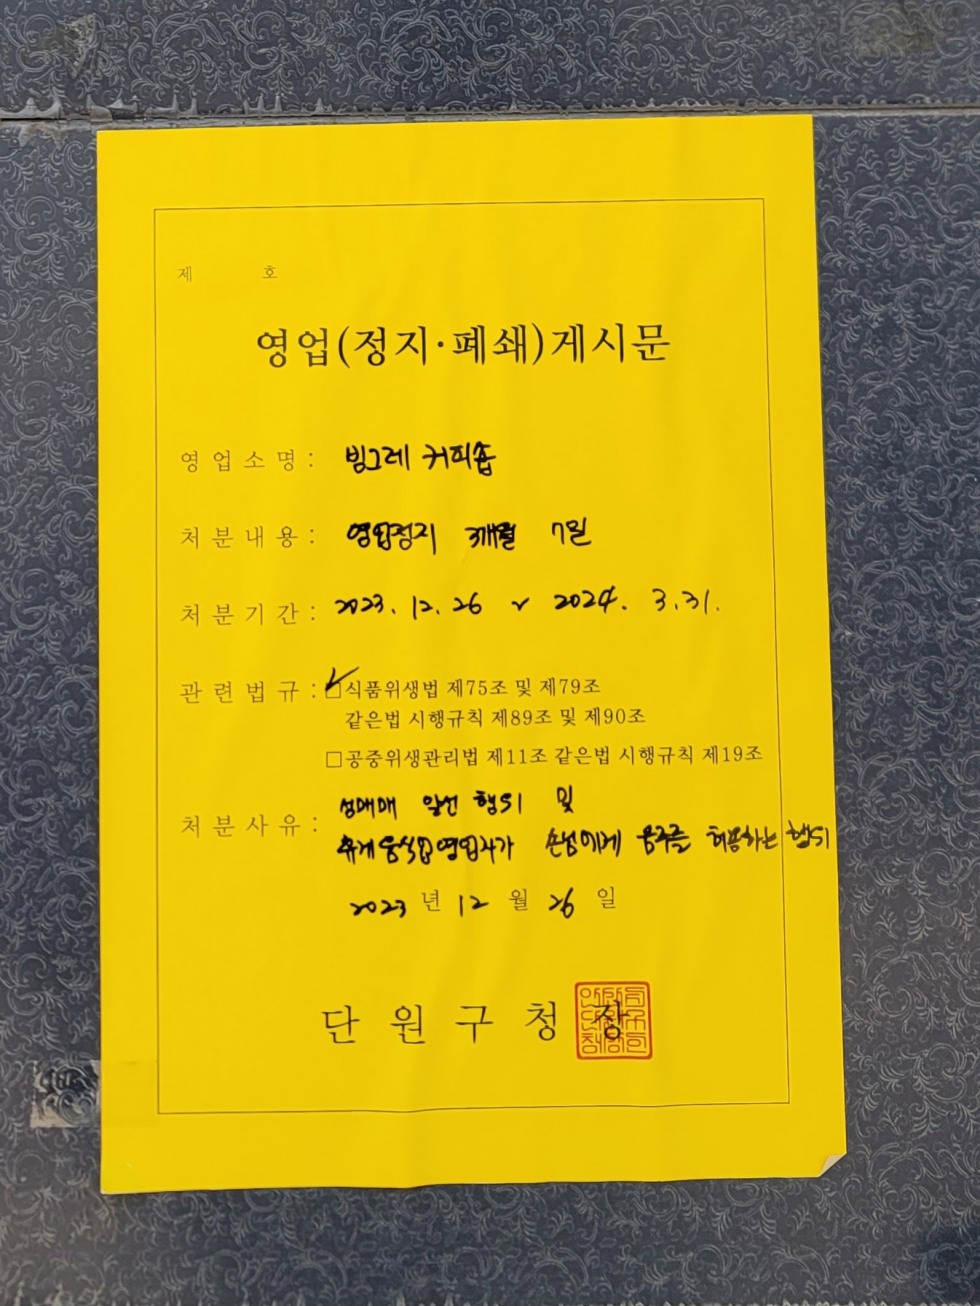 제 호
영업(정지·폐쇄)게시문
영업소명: 빙그레 커피숍
처분내용: 영업정지 3개월 7일
처분기간: 2023. 12. 26 ~ 2024. 3. 31.
관련법규: □식품위생법 제75조 및 제79조
같은법 시행규칙 제89조 및 제90조
□공중위생관리법 제11조 같은법 시행규칙 제19조
처분사유: 성매매 알선 행위 및
휴게음식업영업자가 손님에게 음주를 허용하는 행위
2023 년 12 월 26 일
단원구청장